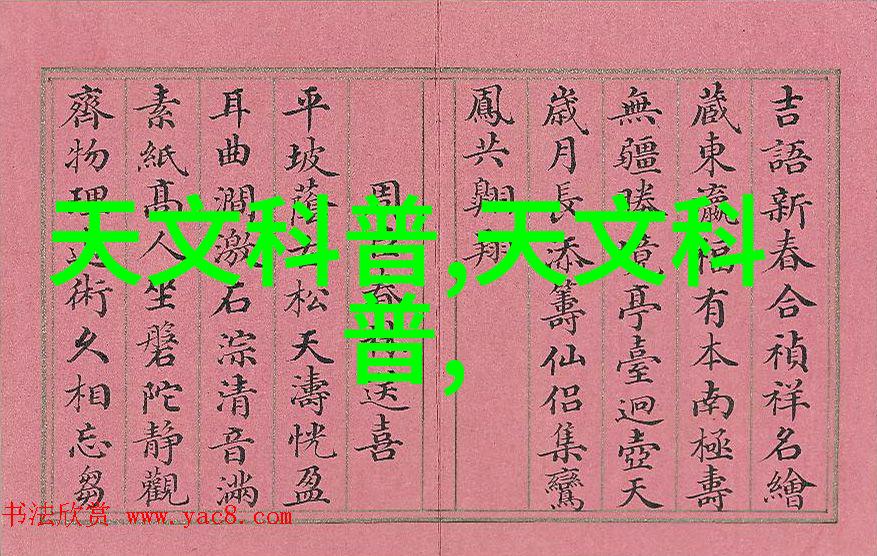 吉語新春合禎祥名繪
藏東瀛福有本南極壽
無疆勝境亭臺迥壺天
歳月長添籌仙侶集鸞
鳳共翱翔
周春送喜
平坡蔭松天濤恍盈
耳曲澗激石淙清音滿
素紙高人坐磐陀靜觀
齊物理術久相忘芻
天文科普,天文科
普,
书法欣赏 www.yac8.com